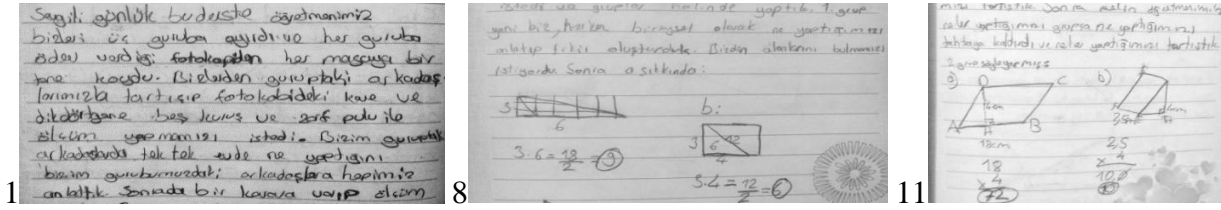 1
Sevgili günlük bu derste öğretmenimiz
bizleri üç guruba ayırdı ve her guruba
ödev verdiği fotokopiden her masaya bir
tane koydu. Bizlerden guruptaki arkadaş
larımızla tartışıp fotokobideki kare ve
dikdörtgene beş kuruş ve zarf pulu ile
ölçüm yapmamızı istedi. Bizim guruptaki
arkadaşlarda tek tek evde ne yaptığını
bizim gurubumuzdaki arkadaşlara hepimiz
anlattık. Sonrada bir karara varıp ölçüm
8
istedi ve gruplar halinde yaptık. 1. grup
yani biz, herkes bireysel olarak ne yaptığımızı
anlatıp fikir oluşturduk. Bizden alanlarını bulmamızı
istiyordu Sonra a şıkkında:
3
6
3.6=18/2=9
b:
3
6
12
4
3.4=12/2=6
11
Sonra öğretmenimiz
neler yaptığımızı
tahtaya kaldırdı ve neler yaptığımızı tartıştık
a)
D
C
4cm
A
H
B
18cm
18
x 4
72
b)
4cm
2,5
x 4
10,0